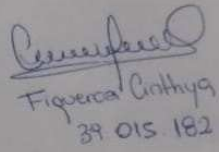 Figueroa Cinthya
39.015.182